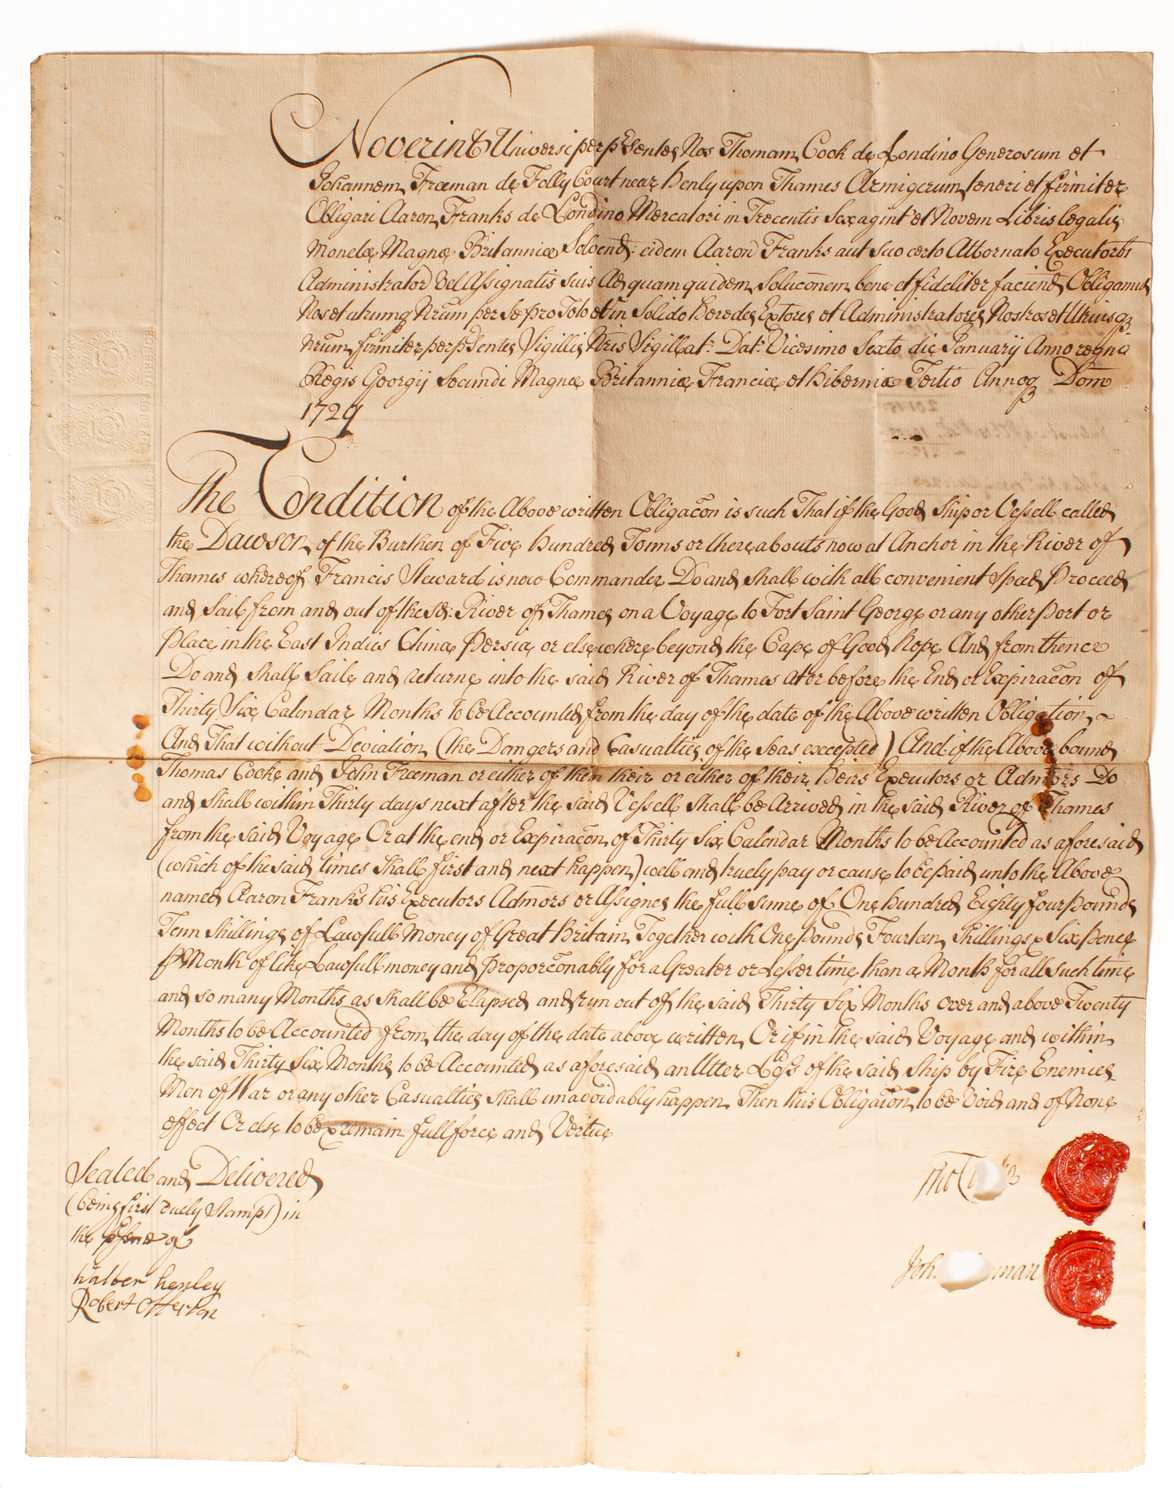 Noverint Universi per p'sentes Nos Thomam Cook de Londino Generosum et
Johannem Freeman de Folly Court near Henly upon Thames Armigerum teneri et firmiter
Obligari Aaron Franks de Londino Mercatori in Trecentis Sexagint' et Novem Libris legalis
Monetæ Magnæ Britanniæ Solvend: eidem Aaron Franks aut suo certo Attornato Executorbs
Administrator vel Assignatis suis Ad quam quidem soluconem bene et fideliter faciend Obligamus
Nos et utrumq Nrum per Se pro Toto et in Solido Heredes Extores et Administratores Nostros et Utriusq
nrum firmiter per p'sentes Sigillis Nris Sigillat: Dat: Vicesimo Sexto die January Anno regni
Regis Georgij Secundi Magnæ Britanniæ Franciæ et Hiberniæ Tertio Annoq Dom
1729
The Condition of the Above written Obligacon is such That if the Good Ship or Vessell called
the Dawson of the Burthen of Five Hundred Tonns or thereabouts now at Anchor in the River of
Thames whereof Francis Steward is now Commander Do and shall with all convenient speed proceed
and Sail from and out of the sd: River of Thames on a Voyage to Fort Saint George or any other port or
place in the East Indies China Persia or elsewhere beyond the Cape of Good Hope And from thence
Do and shall Saile and returne into the said River of Thames at or before the End or Expiracon of
Thirty Six Calendar Months to be Accounted from the day of the date of the Above written Obligation
And That without Deviation (the Dangers and Casualties of the Seas excepted) And if the Above bound
Thomas Cooke and John Freeman or either of them their or either of their Heirs Executors or Admors Do
and shall within Thirty days next after the said Vessell shall be Arrived in the said River of Thames
from the Said Voyage Or at the end or Expiracon of Thirty Six Calendar Months to be Accounted as aforesaid
(which of the said times shall first and next happen) well and truely pay or cause to be paid unto the Above
named Aaron Franks his Executors Admors or Assignes the full summe of One Hundred Eighty four pounds
Tenn Shillings of Lawfull Money of Great Britain Together with One pounds Fourteen Shillings & Six pence
p Month of like Lawfull money and proporconably for a Greater or Lesser time than a Month for all such time
and so many Months as shall be Elapsed and run out of the said Thirty Six Months over and above Twenty
Months to be Accounted from the day of the date above written Or if in the said Voyage and within
the said Thirty Six Months to be Accounted as aforesaid an Utter Loss of the said Ship by Fire Enemies
Men of War or any other Casualties shall unavoidably happen Then this Obligacon to be void and of None
effect Or else to be & remain full force and Vertue
Sealed and Delivered
(being first duely Stampt) in
the p'sence of
Walter Henley
Robert Otterton
Tho
Joh man